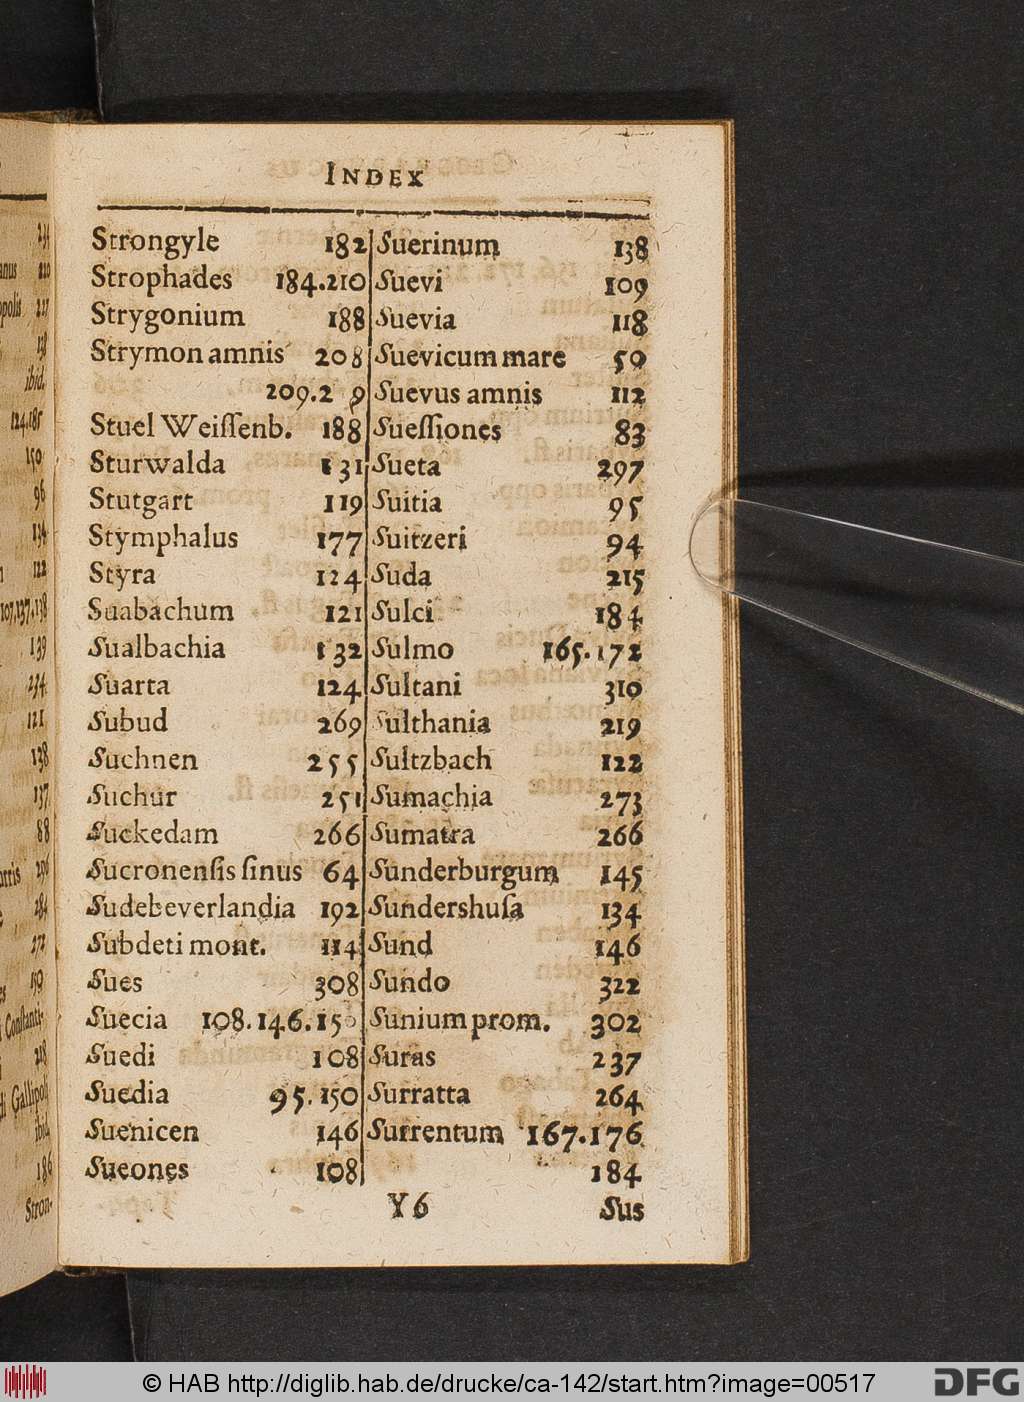 INDEX
Strongyle 182
Strophades 184.210
Strygonium 188
Strymon amnis 208
209.2 9
Stuel Weiſſenb. 188
Sturwalda 131
Stutgart 119
Stymphalus 177
Styra 124
Suabachum 121
Sualbachia 132
Suarta 124
Subud 269
Suchnen 255
Suchur 251
Suckedam 266
Sucronenſis ſinus 64
Sudebeverlandia 192
Subdeti mont. 114
Sues 308
Suecia 108.146.150
Suedi 108
Suedia 95.150
Suenicen 146
Sueones 108
Suerinum 138
Suevi 109
Suevia 118
Suevicum mare 50
Suevus amnis 112
Sueſſiones 83
Sueta 297
Suitia 95
Suitzeri 94
Suda 215
Sulci 184
Sulmo 165.172
Sultani 310
Sulthania 219
Sultzbach 122
Sumachia 273
Sumatra 266
Sunderburgum 145
Sundershuſa 134
Sund 146
Sundo 322
Sunium prom. 302
Suras 237
Surratta 264
Surrentum 167.176
184
Y6 Sus
234
220
227
138
ibid.
124.185
150
96
134
122
107.137.138
139
234
121
138
137
88
296
284
272
159
Constanti-
218
di Gallipoli
ibid.
186
Stron-
© HAB http://diglib.hab.de/drucke/ca-142/start.htm?image=00517
DFG